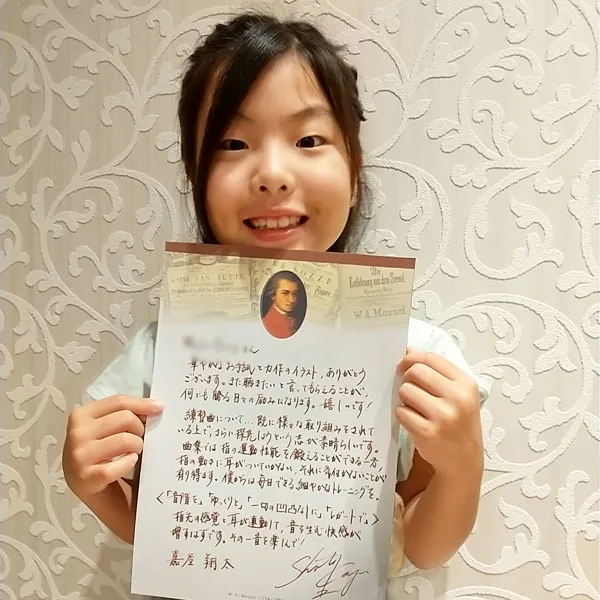 DIE NOZZE
Die
Entführung aus dem Serail
W.A. Mozart
さん
華やかなお手紙と力作のイラスト、ありがとう
ございます。また聴きたいと言ってもらえることが、
何にも勝る日々の励みになります。嬉しいです!
練習曲について…既に様々な取り組みをされて
いる上で、さらに探究しようという志が素晴らしいです。
曲集では指の運動性能を鍛えることができる一方、
指の動きに耳がついていかない、それに気付かないことが
有り得ます。僕からは毎日できる細やかなトレーニングを。
<「全音を」「ゆっくりと」「一切の凹凸なしに」「レガートで」>
指先の感覚と耳が連動して、音を生む快感が
増すはずです。その一音を楽しんで!
嘉屋 翔太